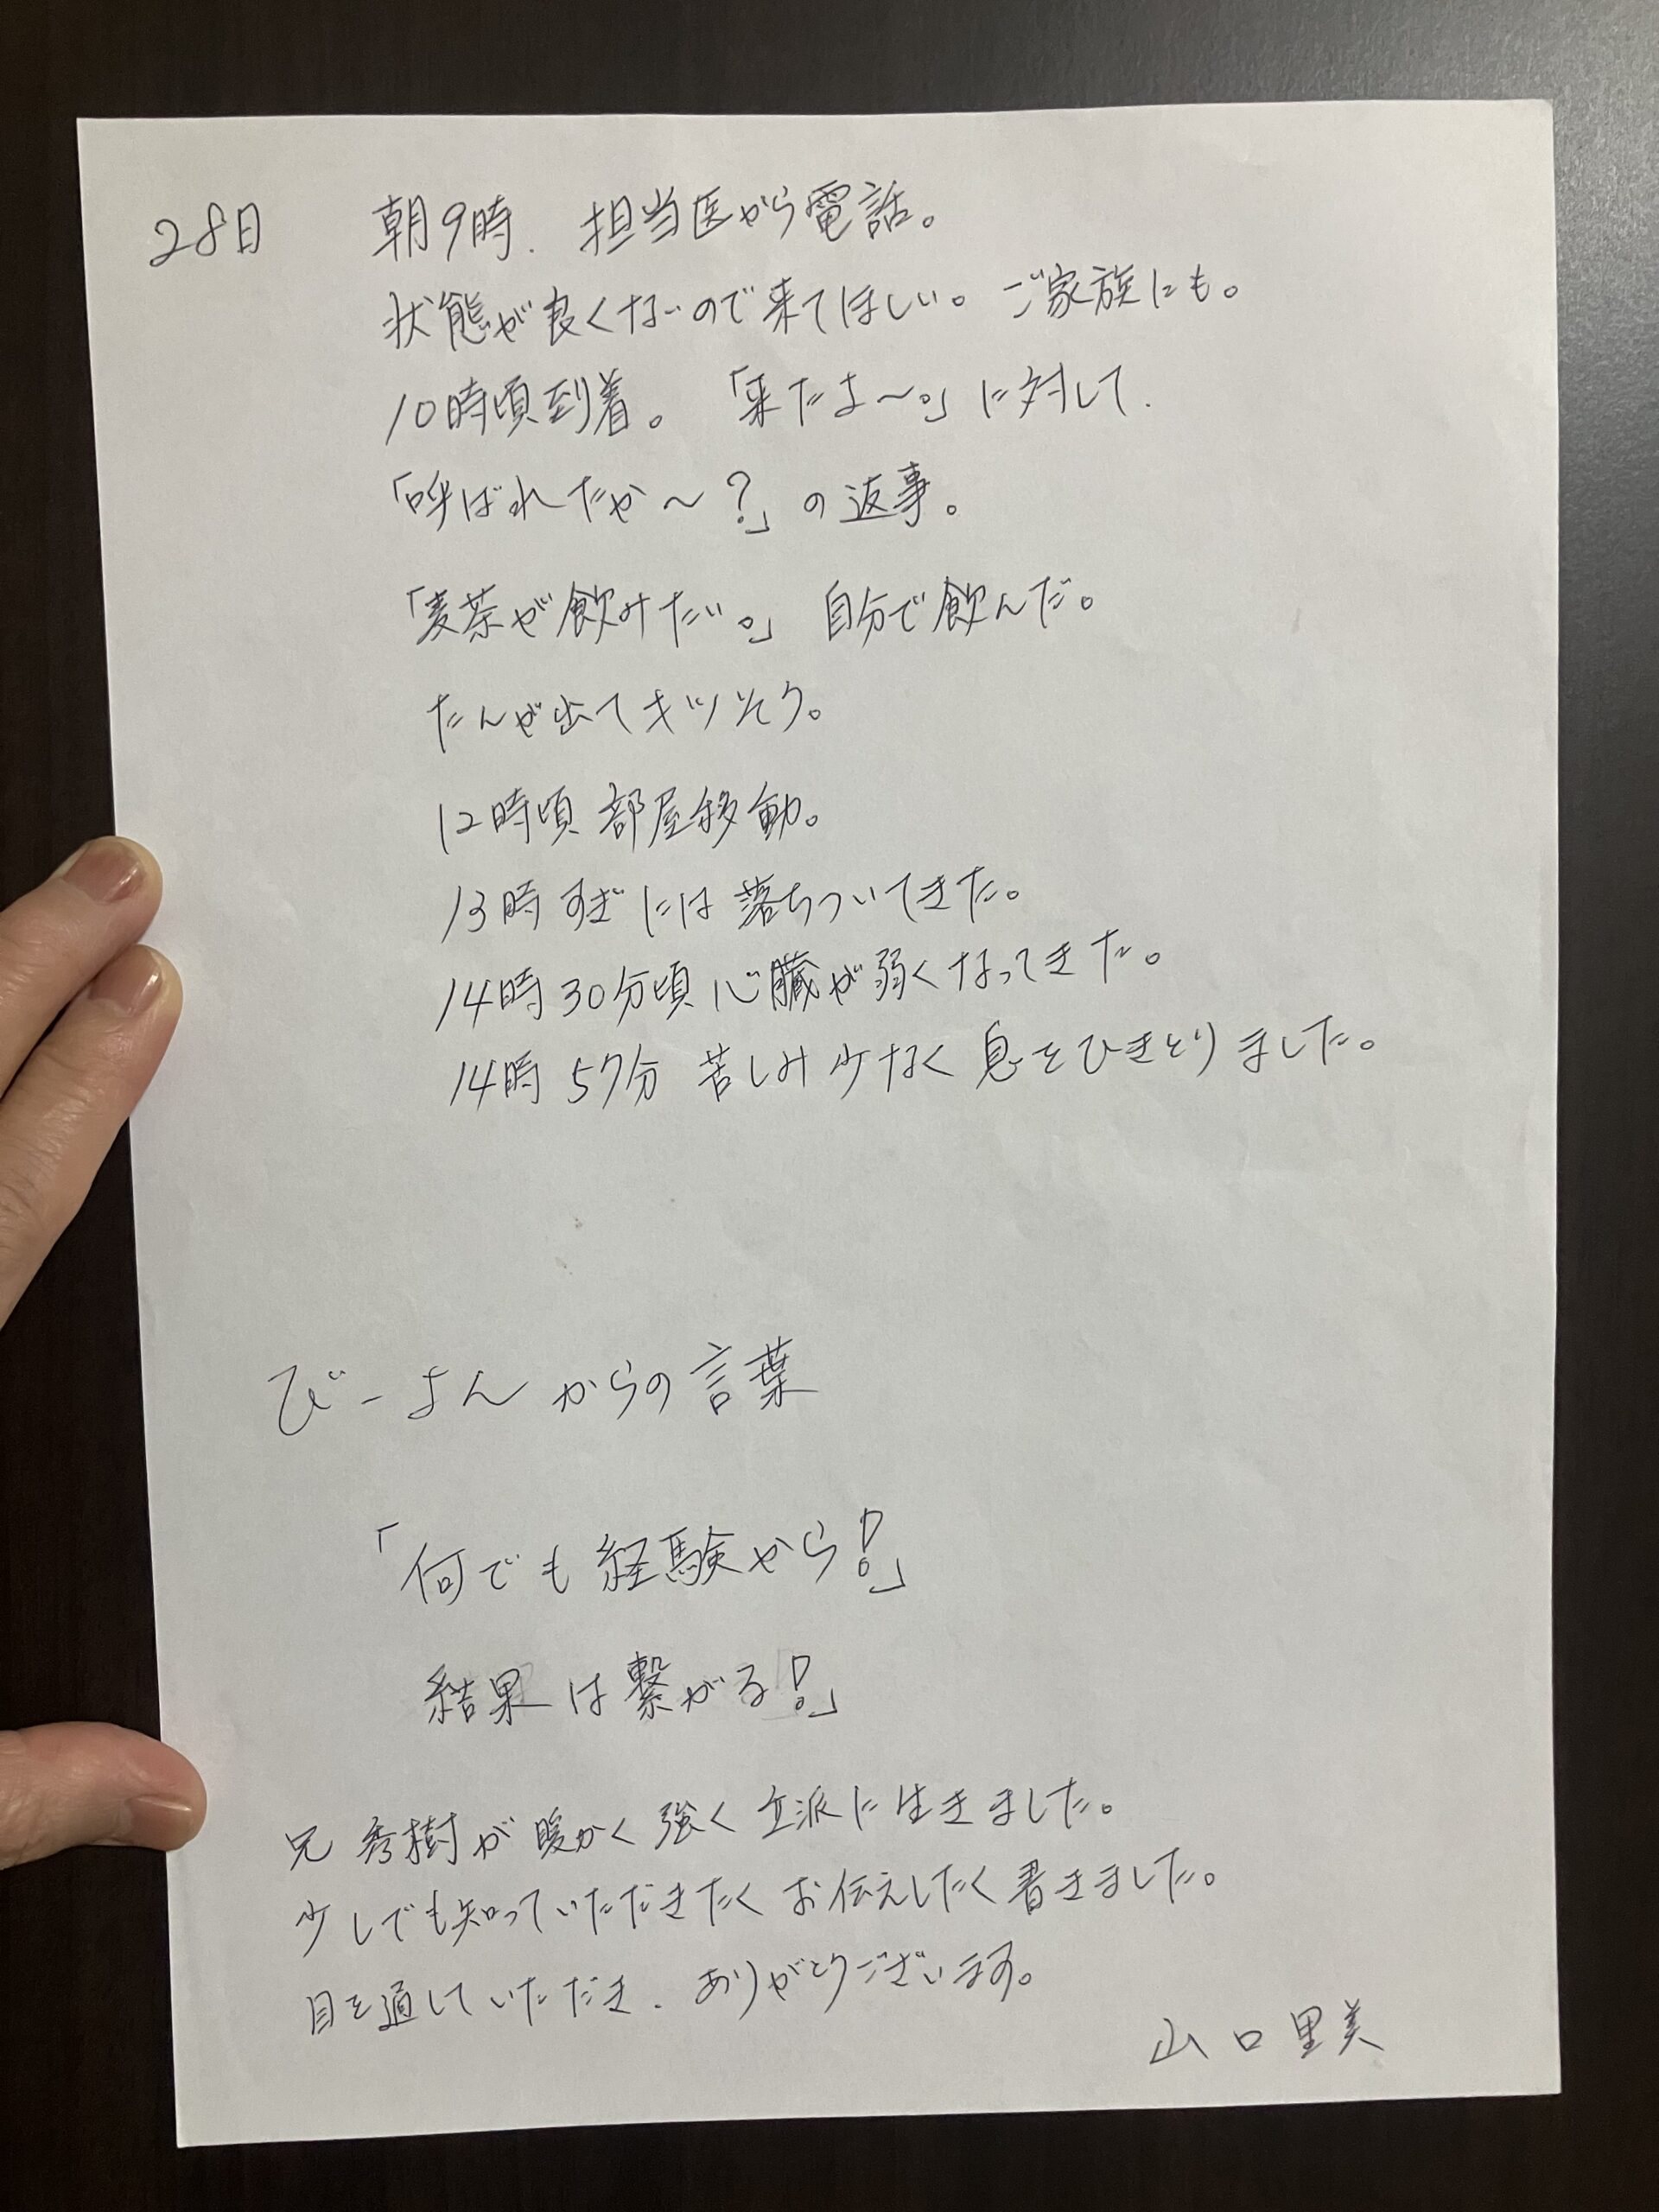 28日 朝9時、担当医から電話。
状態が良くないので来てほしい。ご家族にも。
10時頃到着。「来たよ〜。」に対して、
「呼ばれたか〜?」の返事。
「麦茶が飲みたい。」自分で飲んだ。
たんが出てキツそう。
12時頃 部屋移動。
13時すぎには落ちついてきた。
14時30分頃 心臓が弱くなってきた。
14時57分 苦しみ少なく息をひきとりました。
びーよんからの言葉
「何でも経験から!」
結果は繋がる!」
兄 秀樹が暖かく強く立派に生きました。
少しでも知っていただきたくお伝えしたく書きました。
目を通していただき、ありがとうございます。
山口里美